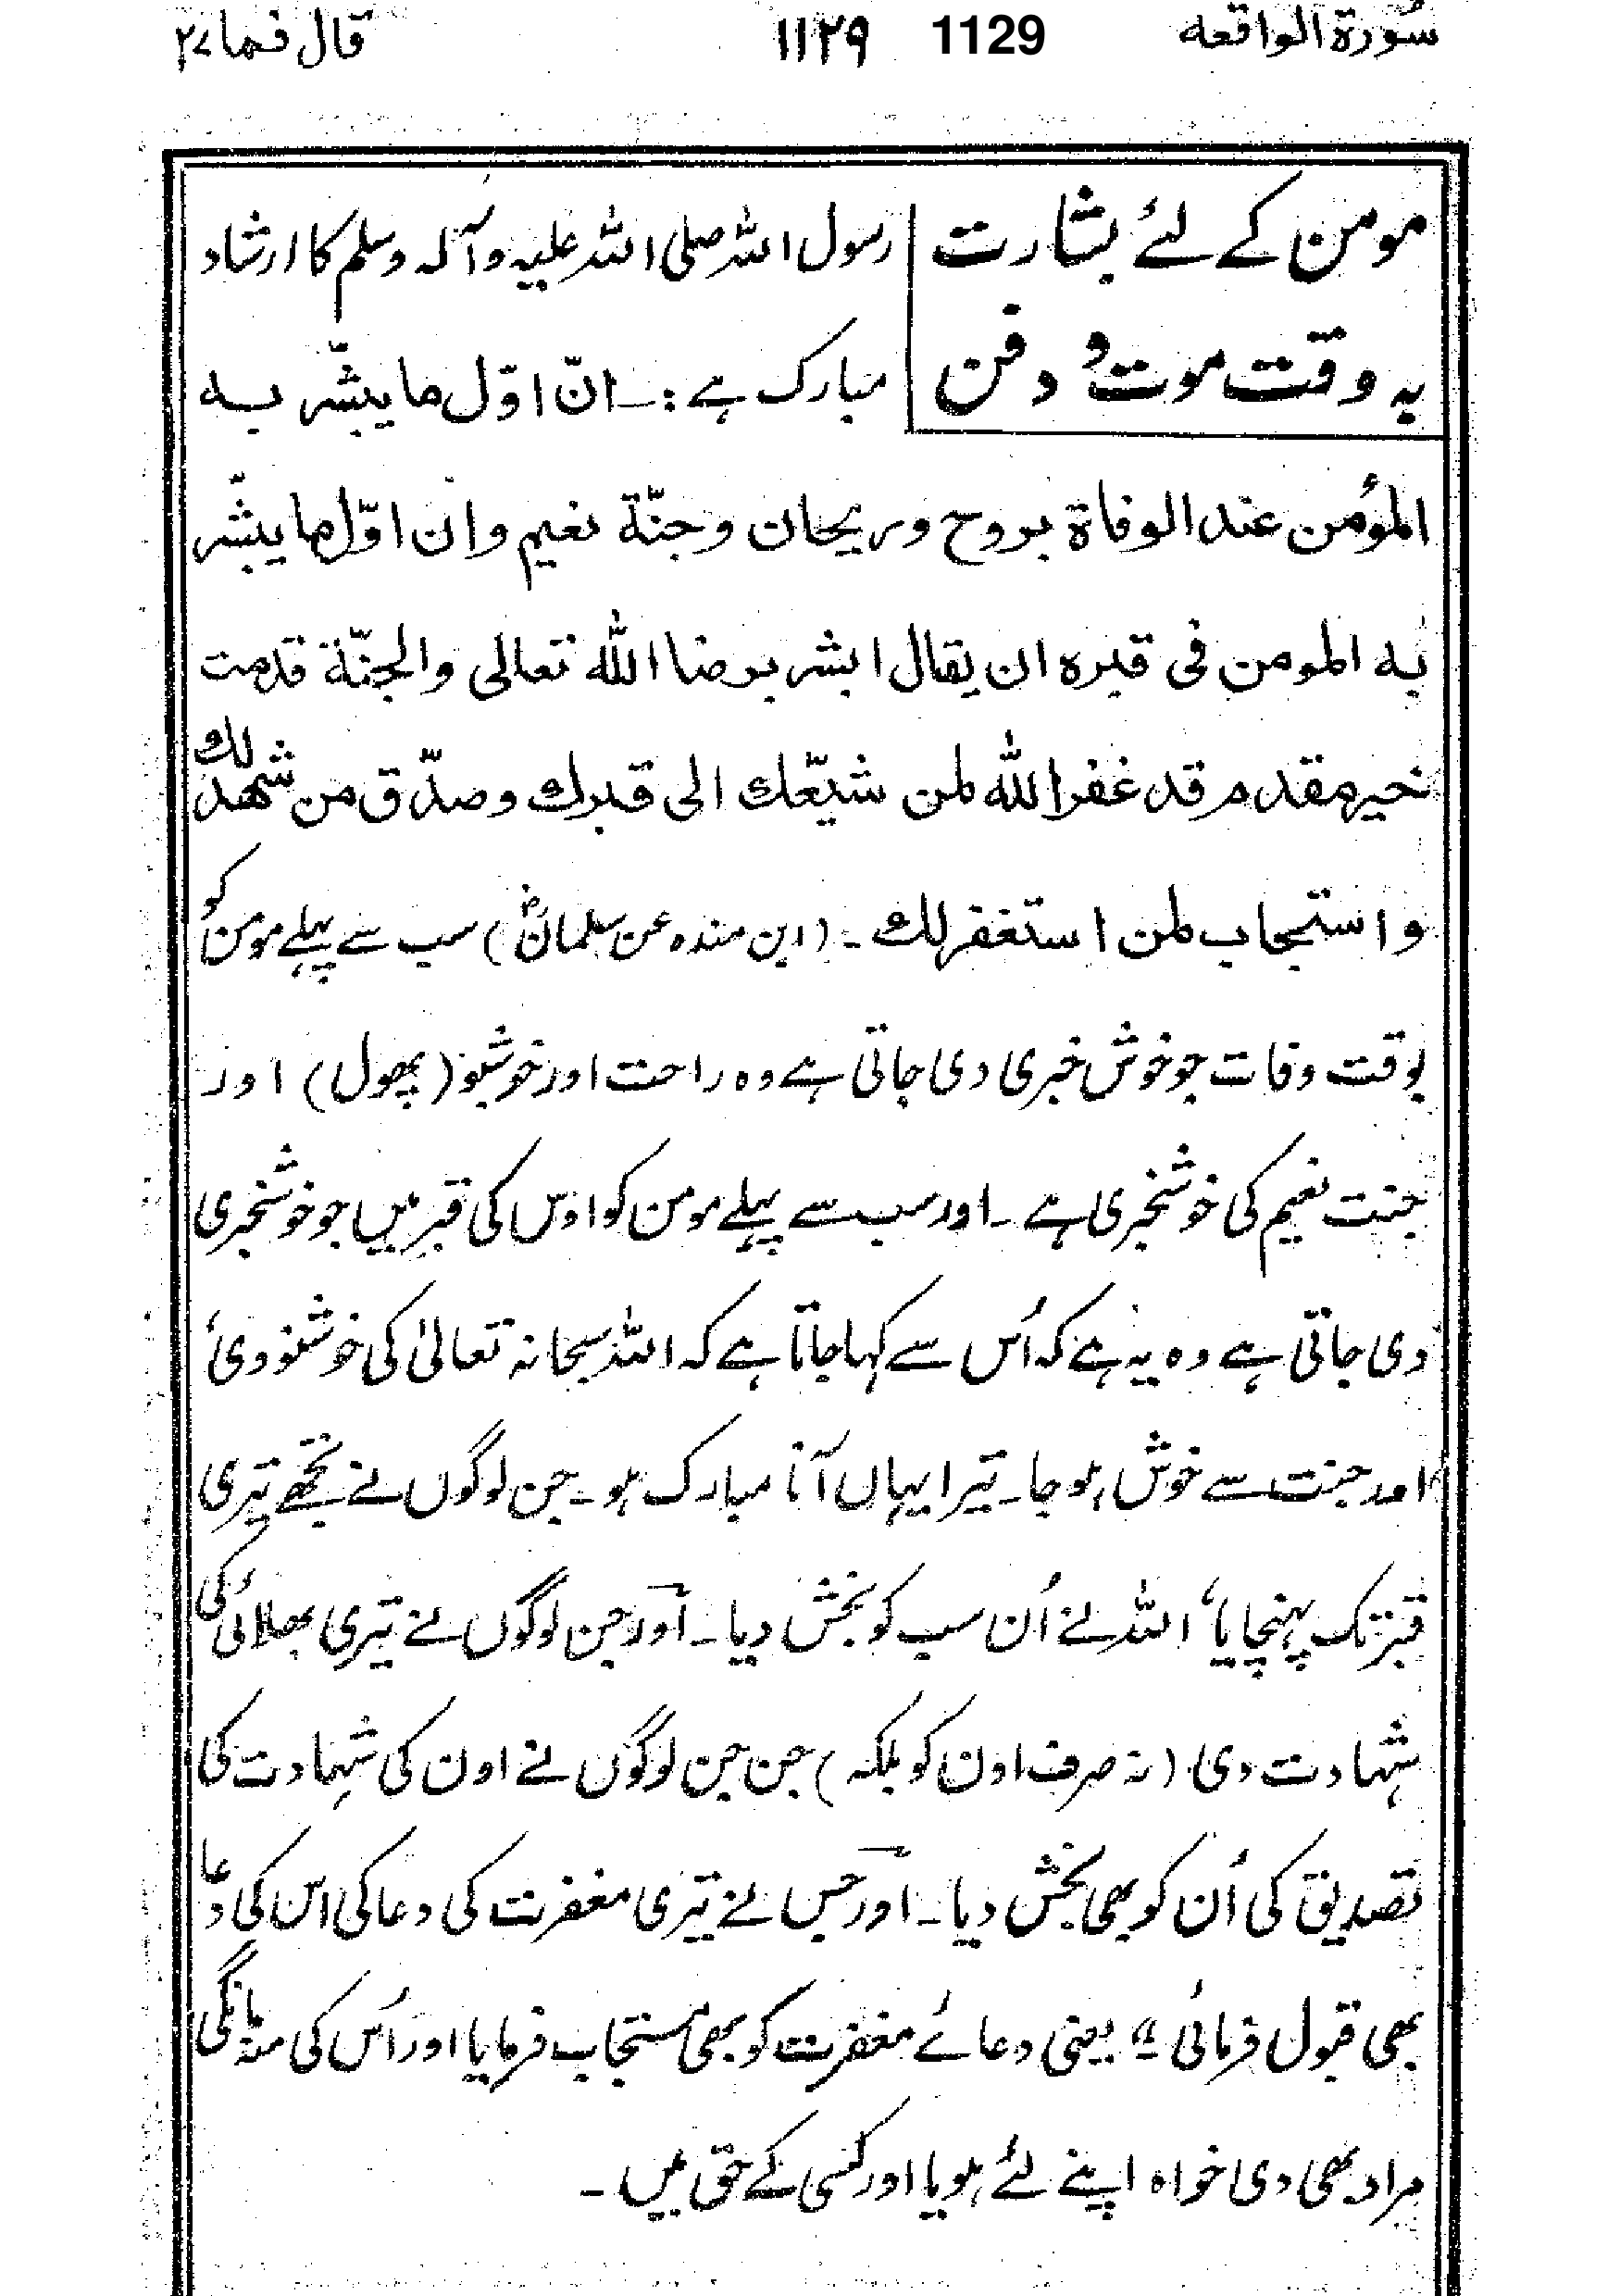 سورة الواقعه 1129 ۱۱۲۹ قال فما ۲۷
مومن کے لئے بشارت
به وقت موت و دفن
رسول اللہ صلی اللہ علیہ وآلہ وسلم کا ارشاد
مبارک ہے :۔ انّ اوّل ما یبشّر به
المؤمن عند الوفاة بروح وریحان وجنّة نعیم وان اوّل ما یبشّر
به المومن فی قبره ان یقال ابشر برضا اللّٰه تعالی والجنّة قدمت
خیر مقدم قد غفر اللّٰه لمن شیّعك الی قبرك وصدّق من شهد لك
واستجاب لمن استغفر لك ۔ (ابن مندہ عن سلمانؓ) سب سے پہلے مومن کو
بوقت وفات جو خوش خبری دی جاتی ہے وہ راحت اور خوشبو (پھول) اور
جنت نعیم کی خوشخبری ہے ۔ اور سب سے پہلے مومن کو اوس کی قبر میں جو خوشخبری
دی جاتی ہے وہ یہ ہے کہ اُس سے کہا جاتا ہے کہ اللہ سبحانہ تعالیٰ کی خوشنودیٔ
اور جنت سے خوش ہو جا۔ تیرا یہاں آنا مبارک ہو۔ جن لوگوں نے تجھے تیری
قبر تک پہنچایا، اللہ نے اُن سب کو بخش دیا۔ اور جن لوگوں نے تیری بھلائی کی
شہادت دی (نہ صرف اون کو بلکہ) جن جن لوگوں نے اون کی شہادت کی
تصدیق کی اُن کو بھی بخش دیا۔ اور جس نے تیری مغفرت کی دعا کی اس کی دعا
بھی قبول فرمائی "۔ یعنی دعائے مغفرت کو بھی مستجاب فرمایا اور اُس کی منہ مانگی
مراد بھی دی خواہ اپنے لئے ہو یا اور کسی کے حق میں ۔